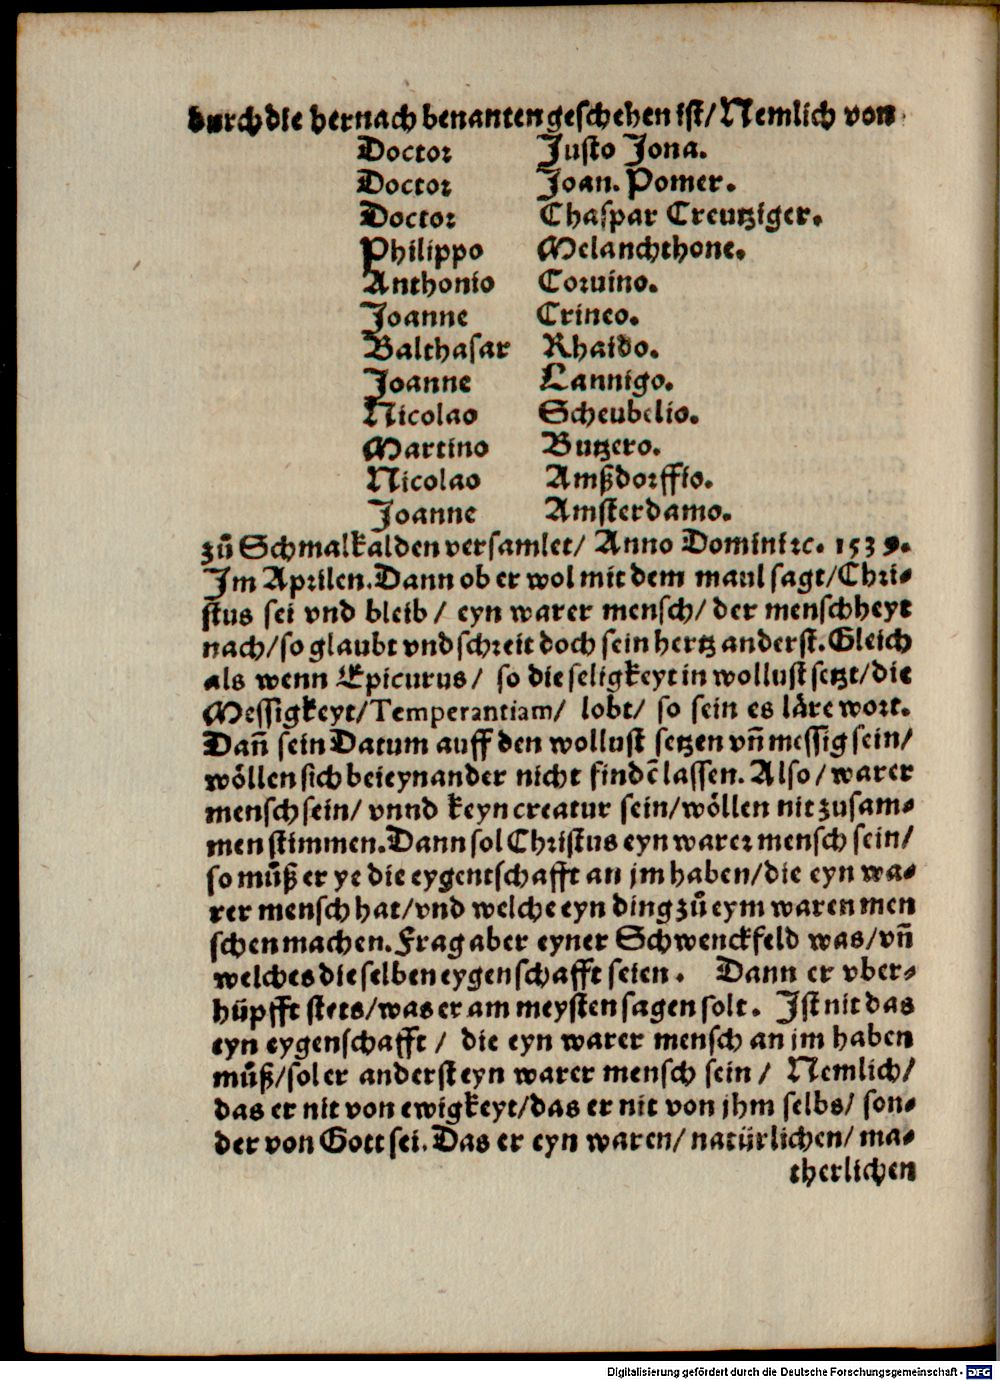 durch die hernach benanten geschehen ist/ Nemlich von
Doctor Justo Jona.
Doctor Joan. Pomer.
Doctor Chaspar Creutziger.
Philippo Melanchthone.
Anthonio Coruino.
Joanne Crineo.
Balthasar Rhaido.
Joanne Lannigo.
Nicolao Scheubelio.
Martino Butzero.
Nicolao Amßdorffio.
Joanne Amsterdamo.
zů Schmalkalden versamlet/ Anno Domini ꝛc. 1539.
Im Aprilen. Dann ob er wol mit dem maul sagt/ Chri-
stus sei vnd bleib/ eyn warer mensch/ der menschheyt
nach/ so glaubt vnd schreit doch sein hertz anderst. Gleich
als wenn Epicurus/ so die seligkeyt in wollust setzt/ die
Messigkeyt/ Temperantiam/ lobt/ so sein es läre wort.
Dañ sein Datum auff den wollust setzen vñ messig sein/
wöllen sich bei eynander nicht findē lassen. Also/ warer
mensch sein/ vnnd keyn creatur sein/ wöllen nit zusam-
men stimmen. Dann sol Christus eyn warer mensch sein/
so můß er ye die eygentschafft an jm haben/ die eyn wa-
rer mensch hat/ vnd welche eyn ding zů eym waren men
schen machen. Frag aber eyner Schwenckfeld was/ vñ
welches die selben eygenschafft seien. Dann er vber-
hüpfft stets/ was er am meysten sagen solt. Ist nit das
eyn eygenschafft/ die eyn warer mensch an jm haben
můß/ sol er anderst eyn warer mensch sein/ Nemlich/
das er nit von ewigkeyt/ das er nit von jhm selbs/ son-
der von Gott sei. Das er eyn waren/ natürlichen/ ma-
therlichen
Digitalisierung gefördert durch die Deutsche Forschungsgemeinschaft - DFG